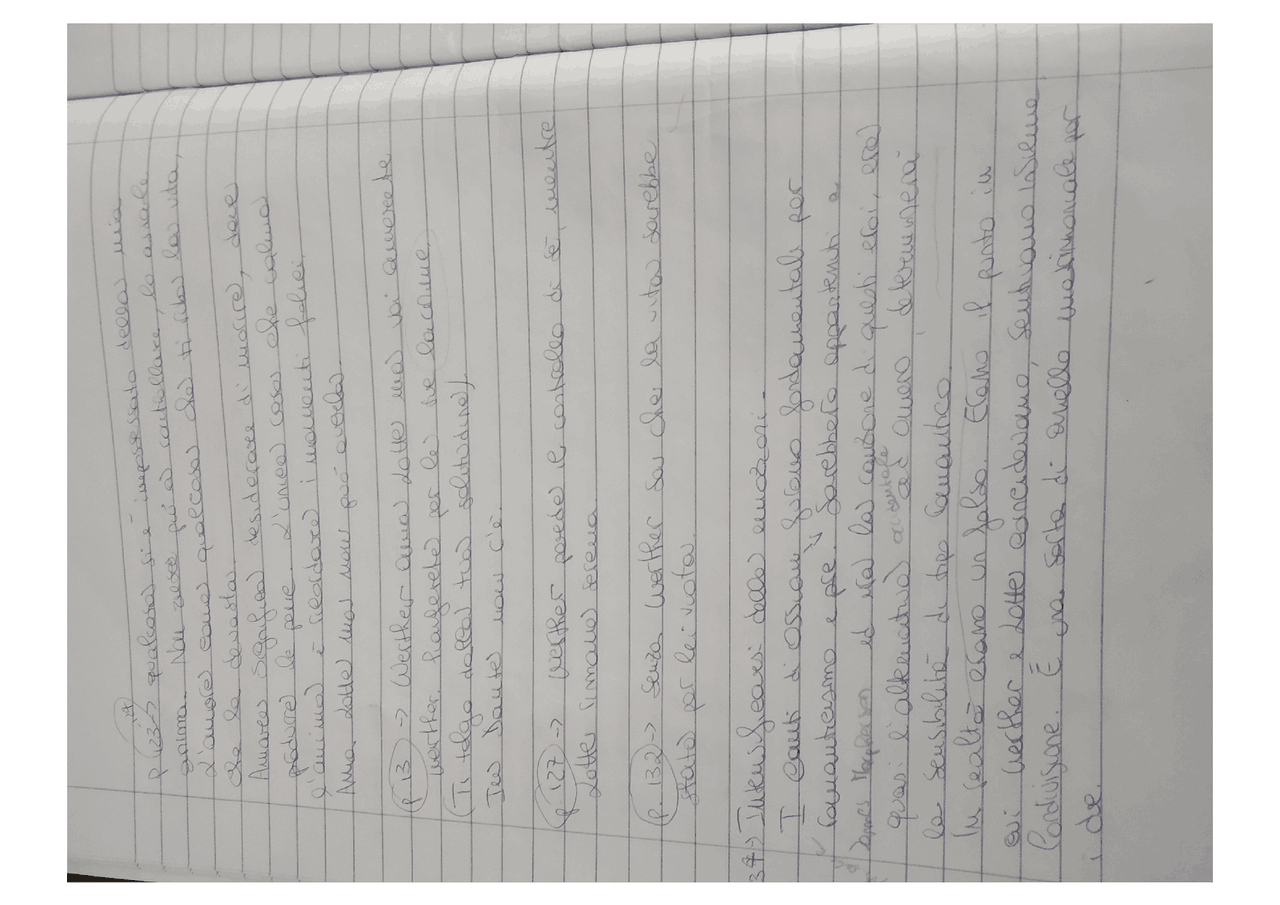 p 123 → qualcosa si è impossessato della mia
anima. Non riesce più a controllare, lo assale
L'amore come qualcosa che ti ruba la vita,
che la devasta.
Amare significa desiderare di morire, dove
le pene. L'unica cosa che calma
l'animo è ricordare i momenti felici.
Ama Lotte ma non può averla.
p 13 → Werther ama Lotte ma voi amerete
Werther, piangerete per le sue lacrime.
(Ti tolgo dalla tua solitudine)
In Dante non c'è.
p. 127 → Werther perde il controllo di sè, mentre
Lotte rimane serena.
p. 132 → Senza Werther sa che la vita sarebbe
stata per lei vuota.
34 → Intensificarsi delle emozioni.
I canti di Ossian furono fondamentali per
romanticismo e pre. Sarebbero appartenuti a
James Macpherson ed era la canzone di questi eroi, era
quasi l'alternativa occidentale ad Omero determinerà
la sensibilità di tipo romantico.
In realtà erano un falso. Erano il punto in
cui Werther e Lotte concordavano, sentivano insieme
Condivisione. È una sorta di anello matrimoniale per
i due.